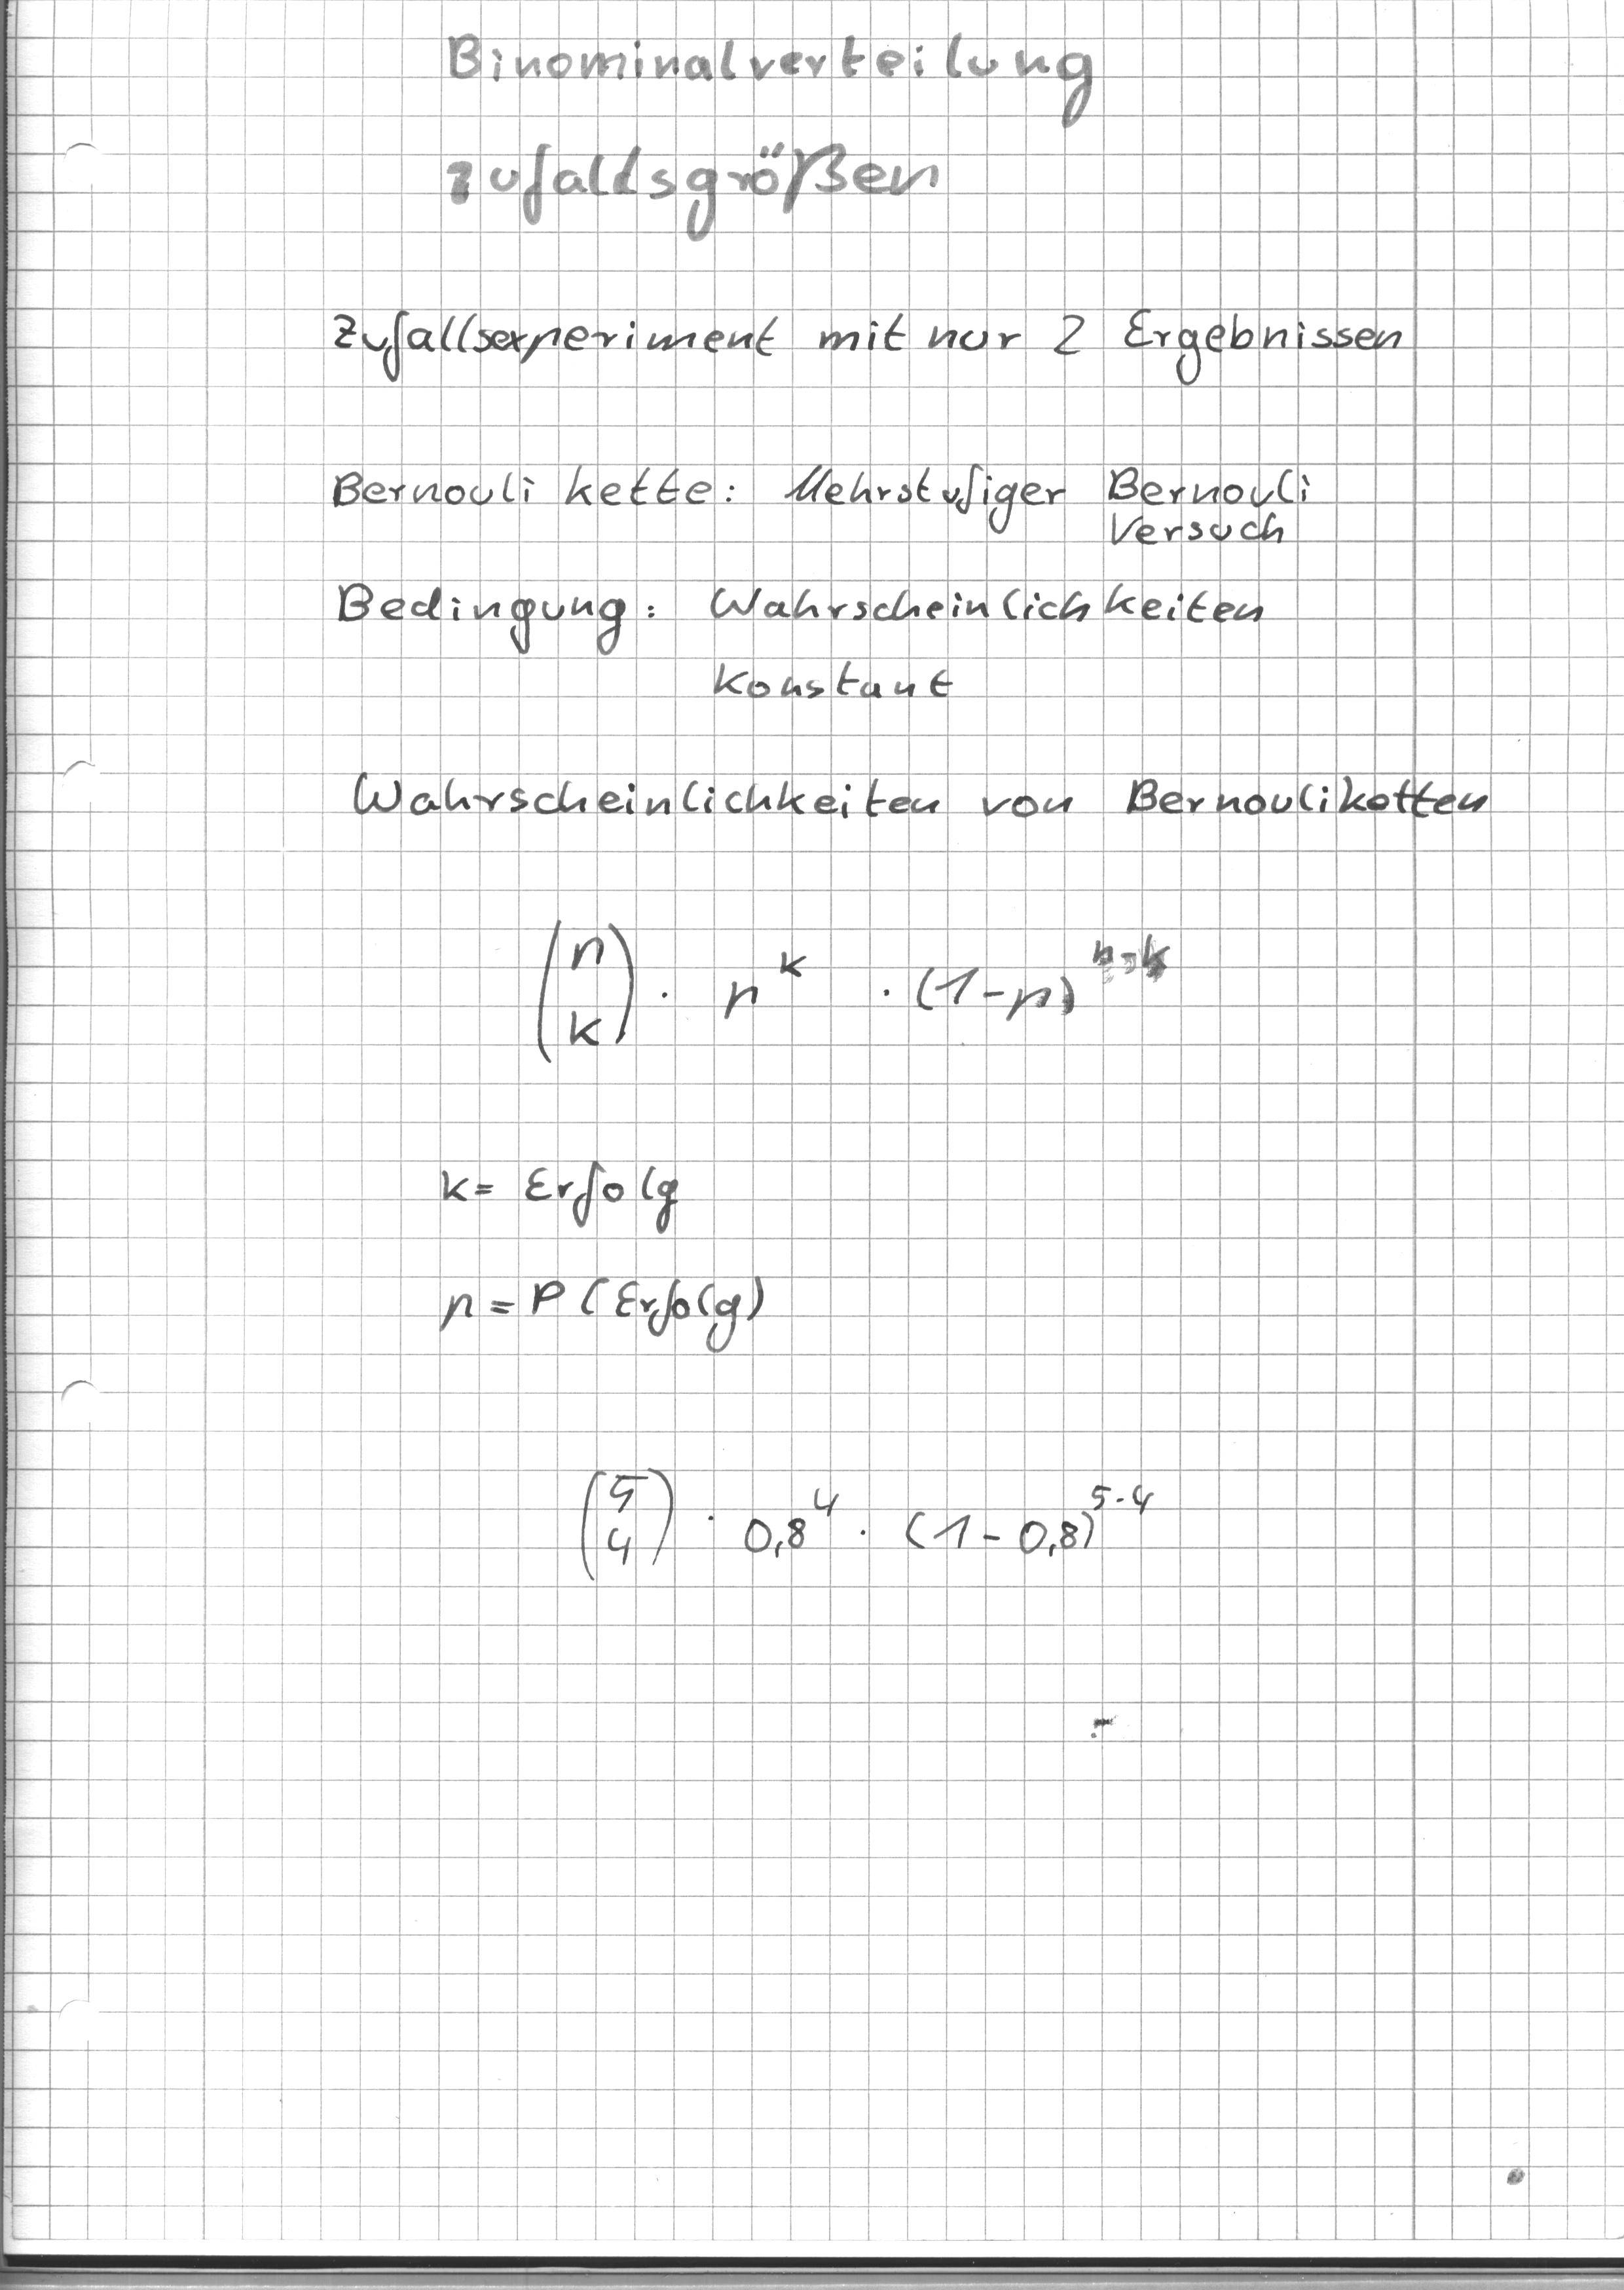 Binominalverteilung
zufallsgrößen
Zufallsexperiment mit nur 2 Ergebnissen
Bernouli kette: Mehrstufiger Bernouli
Versuch
Bedingung: Wahrscheinlichkeiten
konstant
Wahrscheinlichkeiten von Bernouliketten
(n k) · p^k · (1-p)^n-k
k= Erfolg
p = P (Erfolg)
(5 4) · 0,8^4 · (1-0,8)^5-4